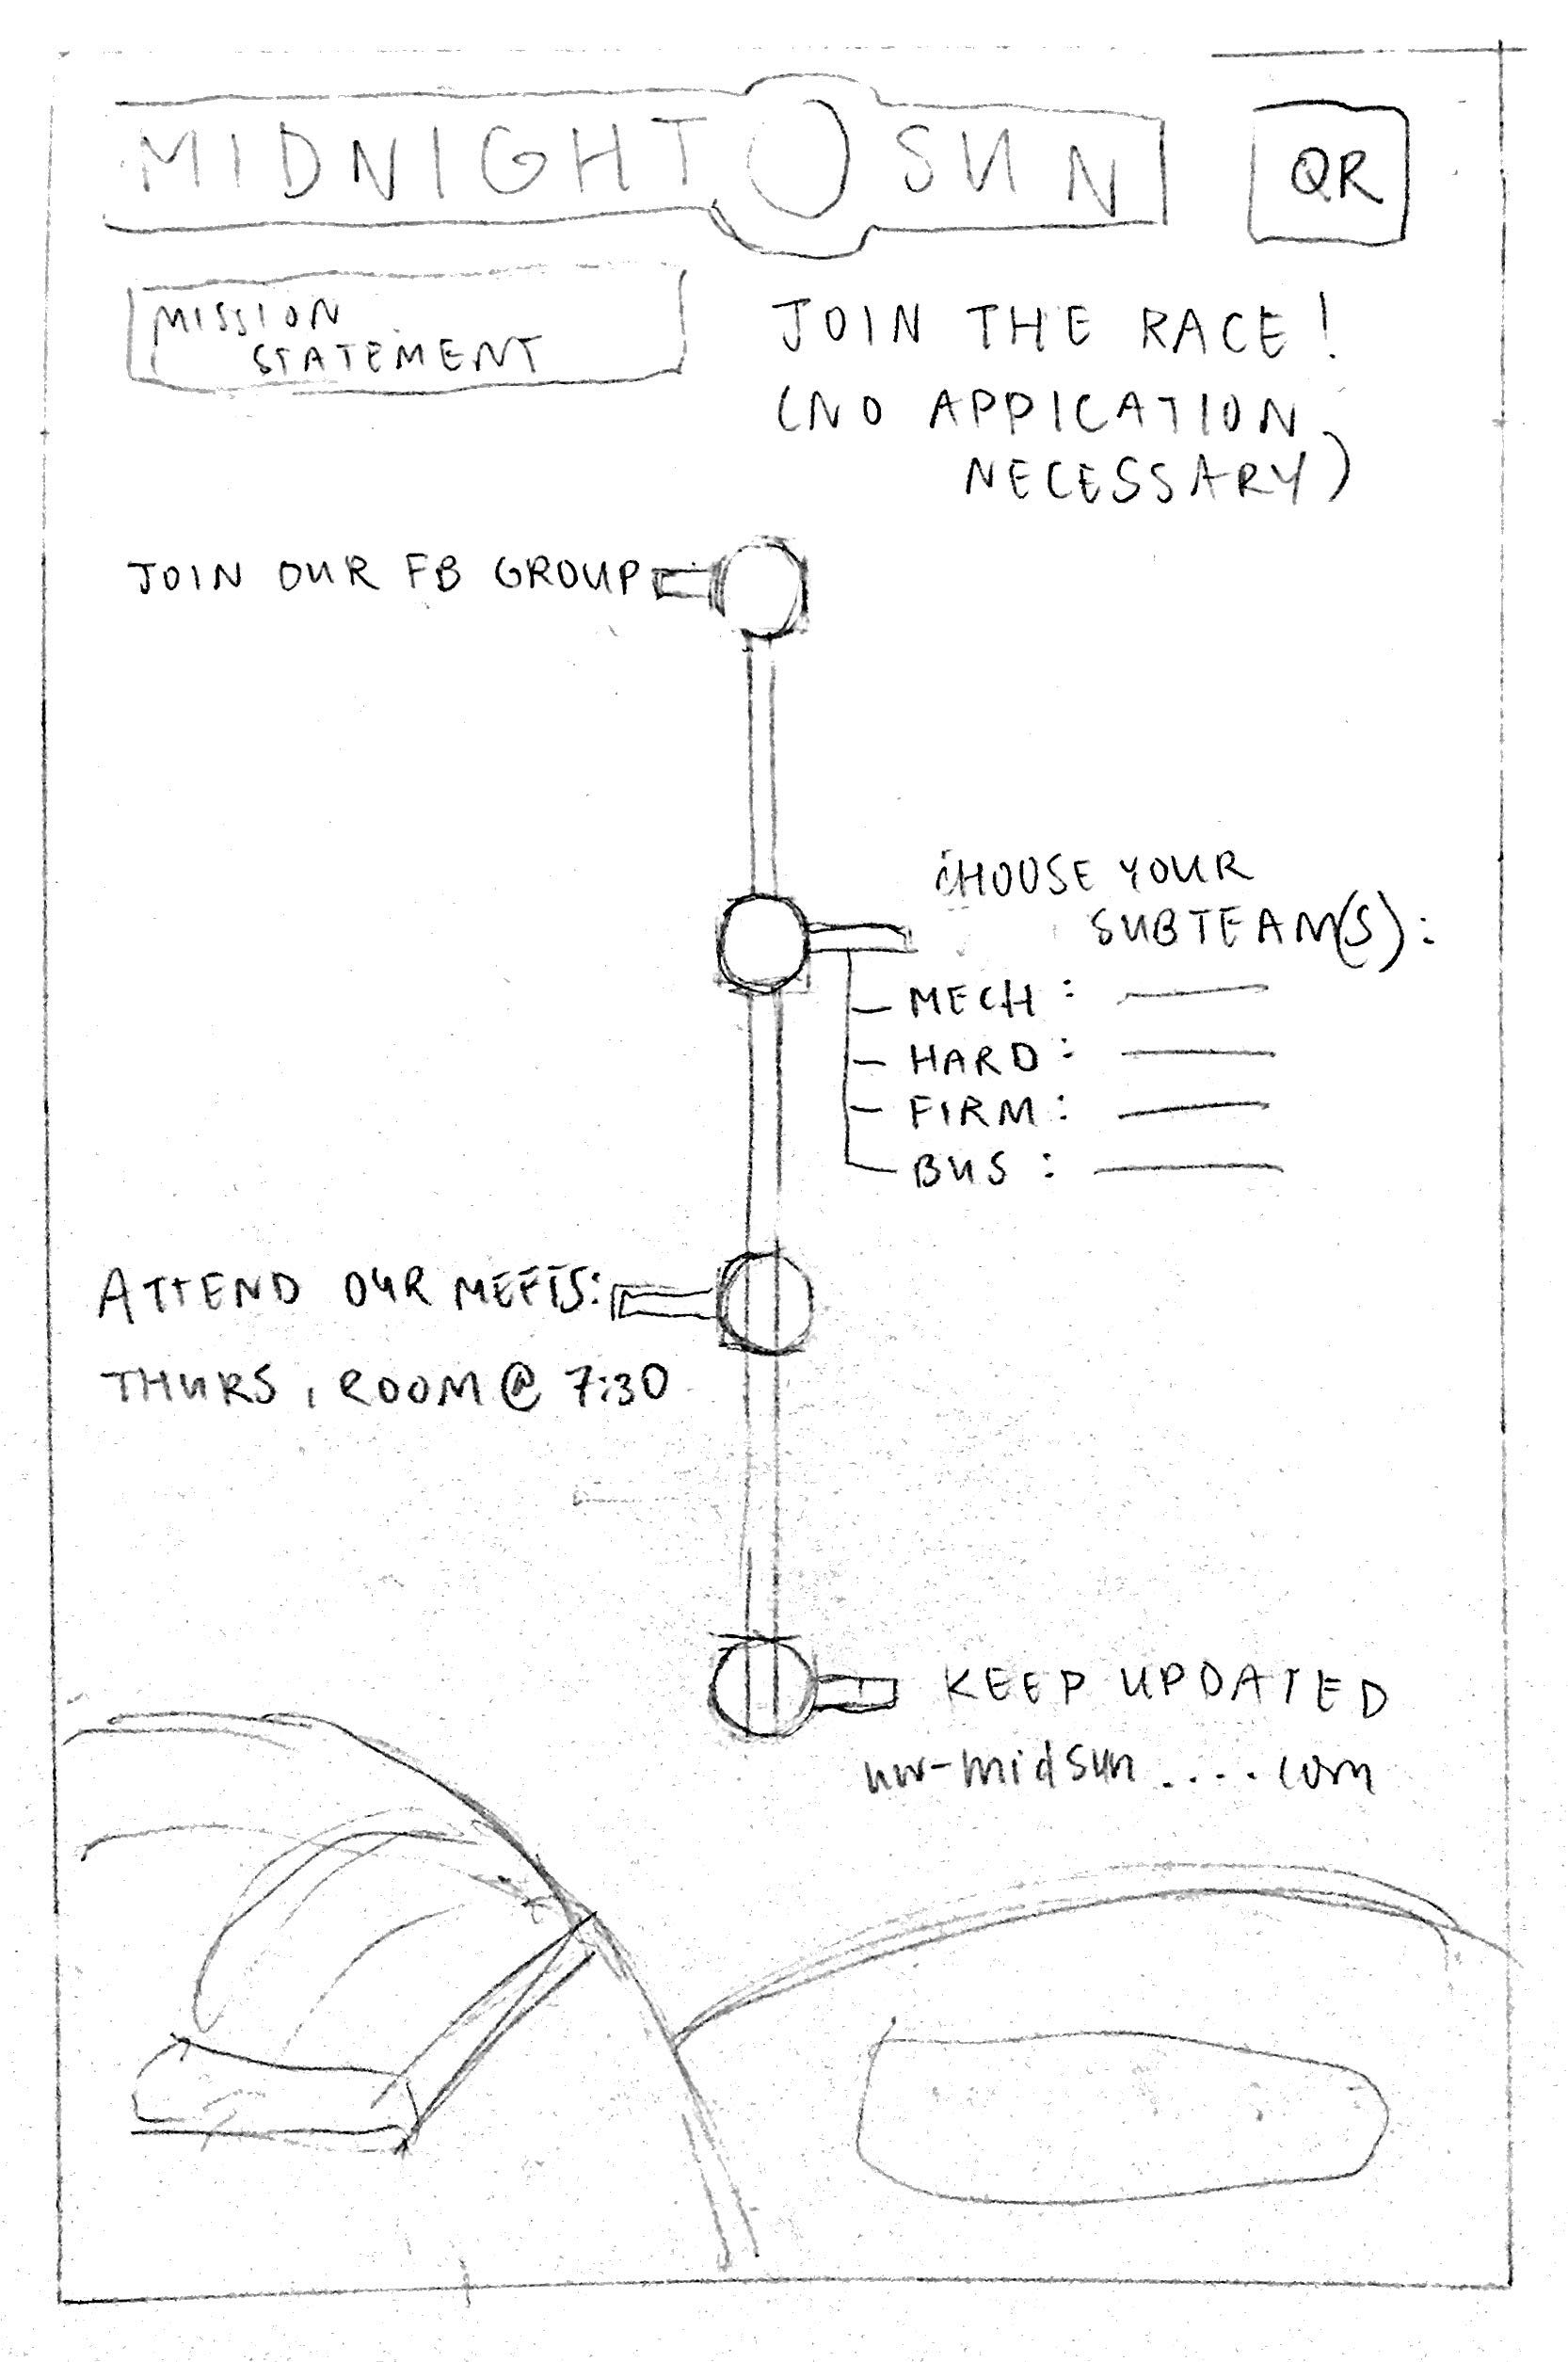 MIDNIGHT SUN
QR
MISSION
STATEMENT
JOIN THE RACE!
(NO APPICATION
NECESSARY)
JOIN OUR FB GROUP
CHOOSE YOUR
SUBTEAM(S):
- MECH :
- HARD :
- FIRM :
BUS :
ATTEND OUR MEETS:
THURS, ROOM @ 7:30
KEEP UPDATED
uw-midsun....com